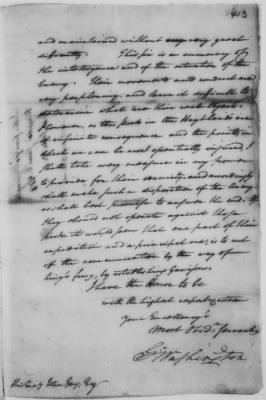 413
and maintained without very great
difficulty. This is a summary of
the intelligence and of the situation of the
Enemy. Their movements and conduct are
very perplexing, and leave it difficult to
determine what are their real objects.
However, as the posts in the Highlands are
of infinite consequence and the points in
which we can be most essentially injured I
shall take every measure in my power
to provide for their security, and accordingly
shall make such a disposition of the army
as shall best promise to answer the end. If
they should not operate against those
posts it would seem that one part of their
expedition and a principal one, is to cut
off the communication by the way of
King's ferry, by establishing Garrisons.
I have the Honor to be
with the highest respect & esteem
Your Excellency's
Most Obedt. Servant
Go: Washington
His Excely John Jay, Esq